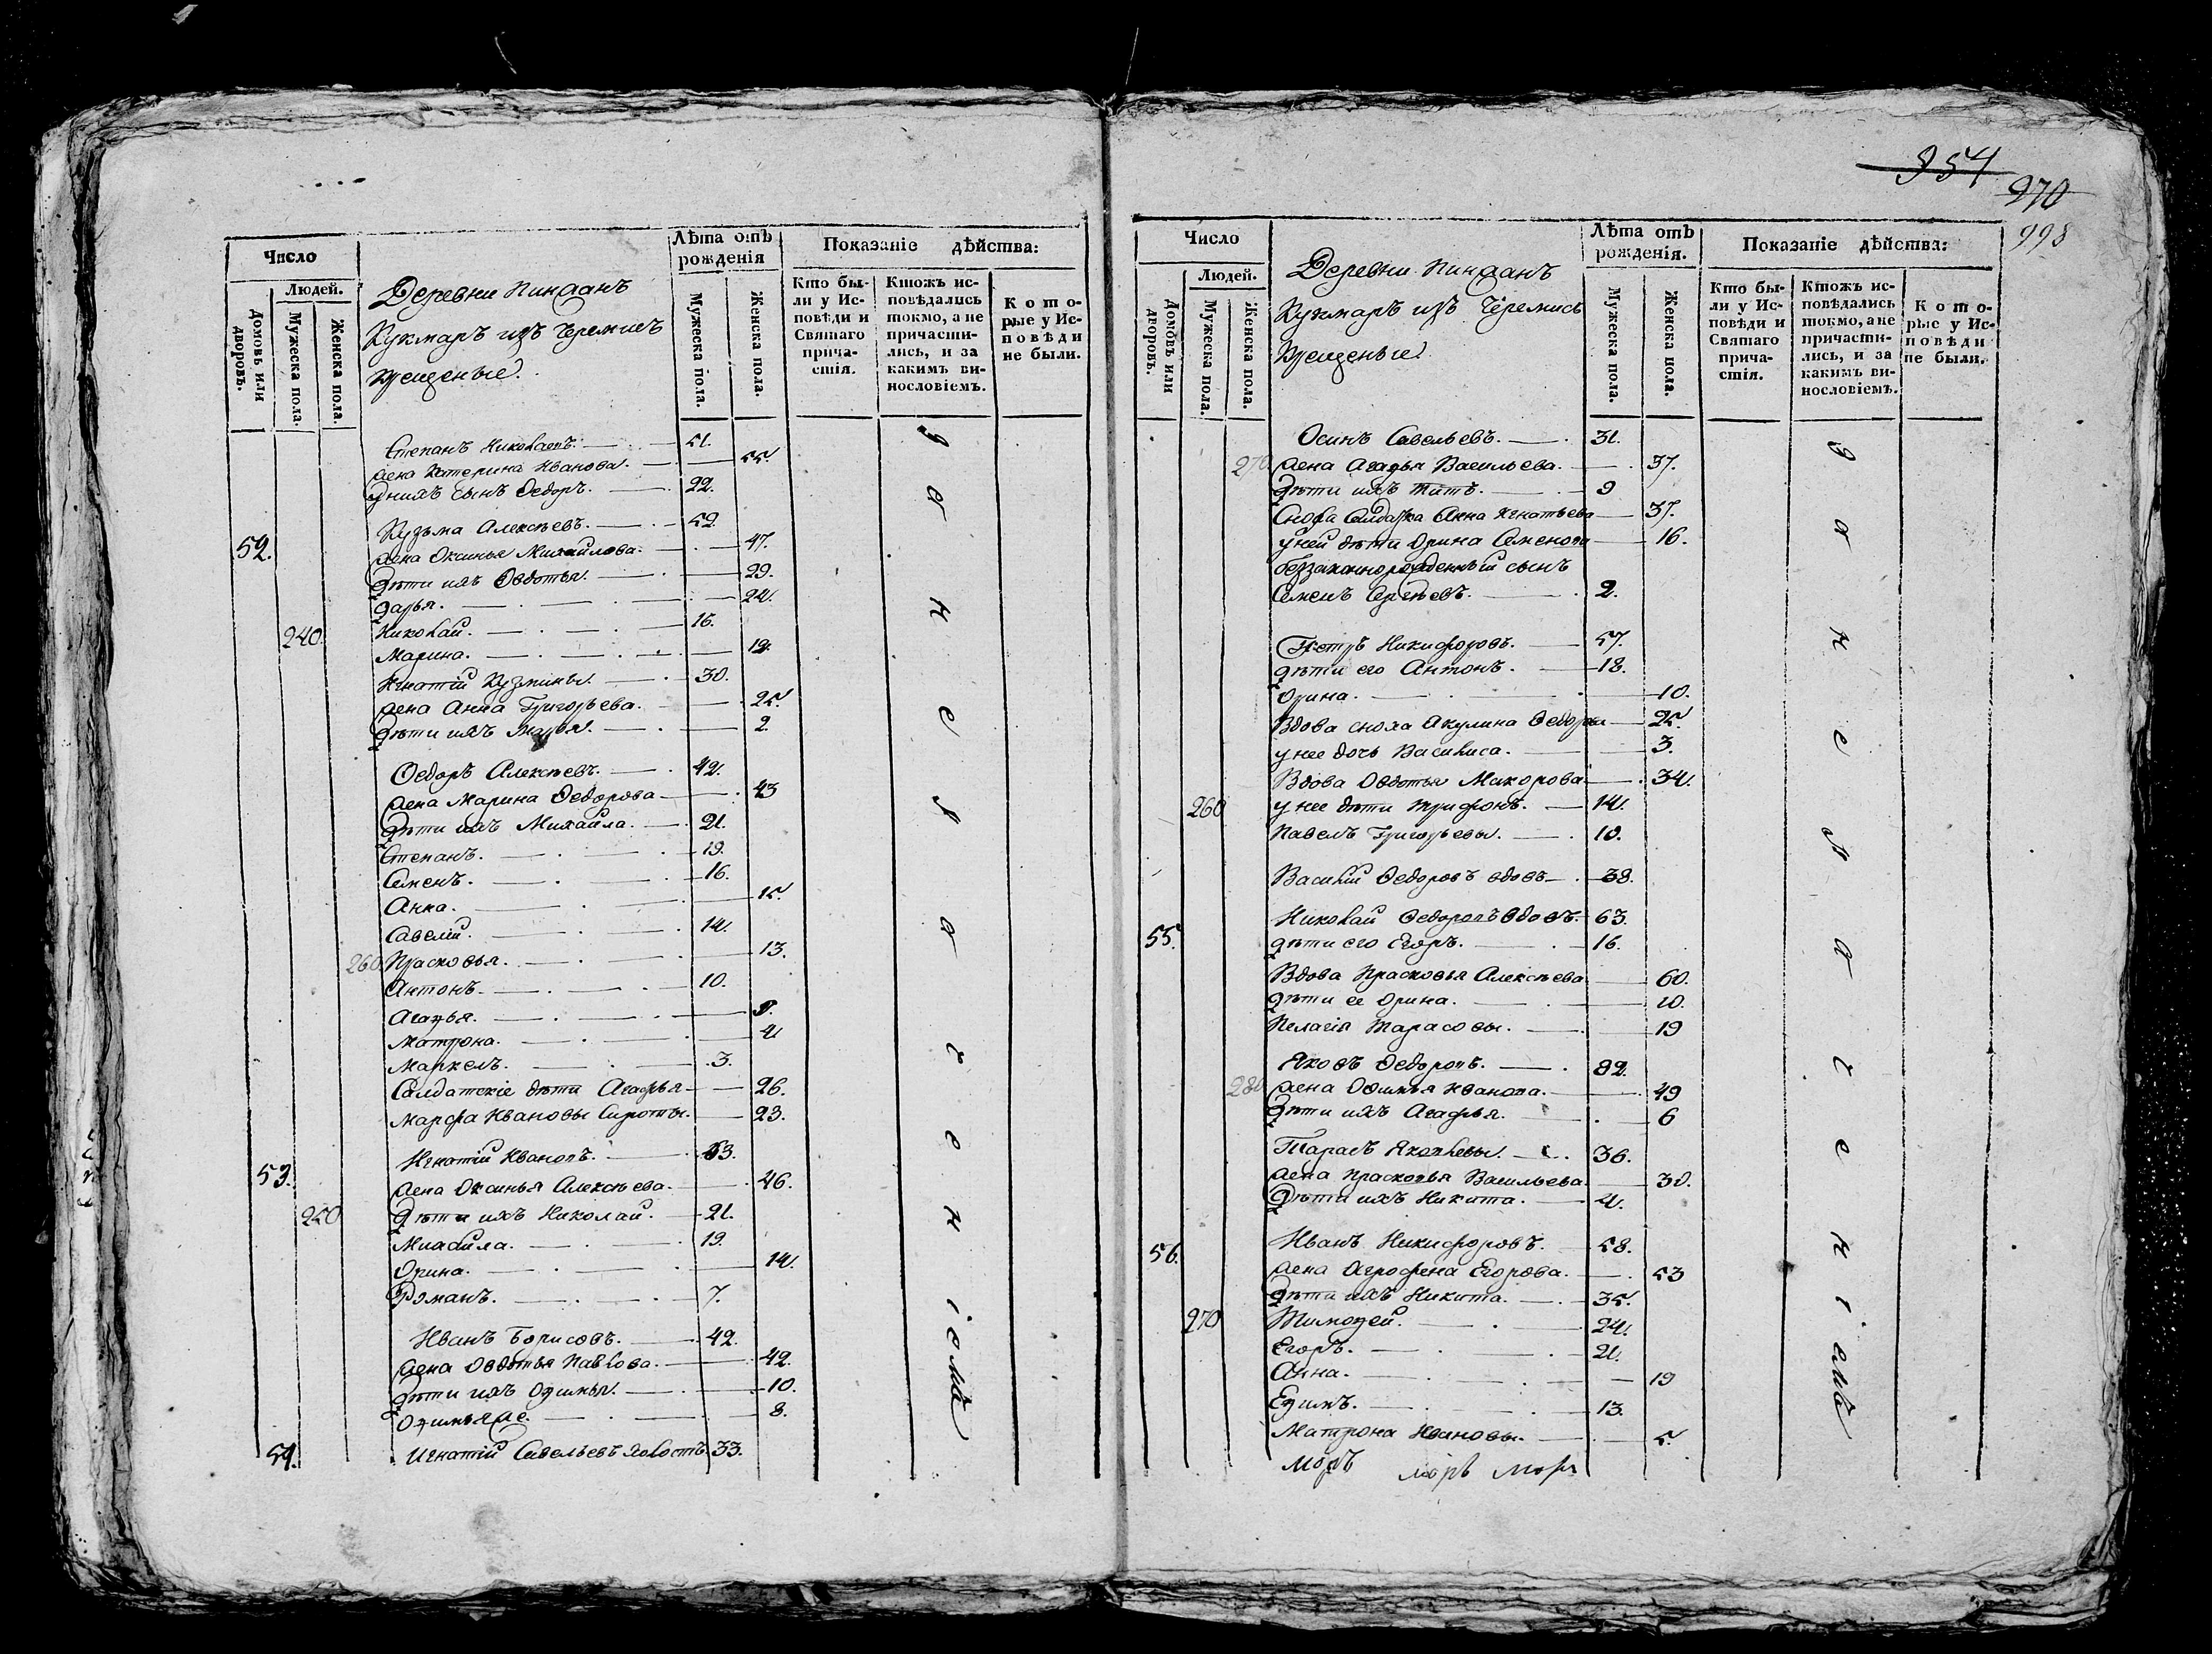 954
270
998
Число
Людей.
Домовъ или дворовъ.
Мужеска пола.
Женска пола.
Деревни Пинданъ
Кукмаръ изъ Черемисъ
Крещеные.
Лѣта отъ рожденія
Мужеска пола.
Женска пола.
Показаніе дѣйства:
Кто бы-
ли у Ис-
повѣди и
Святаго
прича-
стія.
Ктожъ ис-
повѣдались
токмо, а не
причасти-
лись, и за
какимъ ви-
нословіемъ.
К о т о-
рые у Ис-
п о в ѣ д и
не были.
Степанъ Николаевъ. 51.
жена Катерина Иванова. 55.
у нихъ сынъ Ѳедоръ. 22.
52. Кузьма Алексѣевъ. 52.
жена Оксинья Михайлова. 47.
дѣти ихъ Овдотья. 29.
Дарья. 24.
240. Николай. 16.
Марина. 12.
Игнатій Кузмины. 30.
жена Анна Григорьева. 25.
дѣти ихъ Марья. 2.
Ѳедоръ Алексѣевъ. 42.
жена Марина Ѳедорова 43
дѣти ихъ Михайла. 21.
Степанъ. 19.
Семенъ. 16.
Анна. 15.
Савелій. 14.
260 Прасковья. 13.
Антонъ. 10.
Агафья. 9.
Матрона. 4
Маркелъ. 3.
Салдатскіе дѣти Агафья 26.
Марфа Ивановы Сироты. 23.
53. Игнатій Ивановъ. 53.
жена Оксинья Алексѣева. 46.
250 дѣти ихъ Николай. 21.
Михайла. 19.
Орина. 14.
Романъ. 7.
Иванъ Борисовъ. 42.
жена Овдотья Павлова. 42.
дѣти ихъ Офимья. 10.
Офимья же. 8.
54. Игнатій Савельевъ Холостъ. 33.
за неволовтченіемъ
Число
Людей.
Домовъ или дворовъ.
Мужеска пола.
Женска пола.
Деревни Пинданъ
Кукмаръ изъ Черемисъ
Крещеные.
Лѣта отъ рожденія.
Мужеска пола.
Женска пола.
Показаніе дѣйства:
Кто бы-
ли у Ис-
повѣди и
Святаго
прича-
стія.
Ктожъ ис-
повѣдались
токмо, а не
причасти-
лись, и за
какимъ ви-
нословіемъ.
К о т о-
рые у Ис-
п о в ѣ д и
не были.
Осипъ Савельевъ. 31.
270 жена Агафья Васильева. 37.
дѣти ихъ Титъ. 9
Сноха Салдатка Анна Игнатьева 37.
у ней дѣти Орина Семенова 16.
беззаконнорожденный сынъ
Семенъ Сергѣевъ. 2.
Петръ Никифоровъ. 57.
дѣти его Антонъ. 18.
Орина. 10.
Вдова сноха Акулина Ѳедорова 25.
у нее дочь Василиса. 3.
Вдова Овдотья Макорова 34.
260 у нее дѣти Трифонъ. 14.
Павелъ Григорьевы. 10.
Василій Ѳедоровъ вдовъ 38.
55. Николай Ѳедоровъ вдовъ. 63.
дѣти его Егоръ. 16.
Вдова Прасковья Алексѣева 60.
дѣти ее Орина. 20.
Пелагія Тарасовы. 19
Яковъ Ѳедоровъ. 82.
280 жена Офимья Иванова. 49
дѣти ихъ Агафья. 6
Тарасъ Яковлевы. 36.
жена Прасковья Васильева. 30.
дѣти ихъ Никита. 4.
56. Иванъ Никифоровъ. 58.
жена Огрофена Егорова. 53
дѣти ихъ Никита. 35.
270 Тимофей. 24.
Егоръ. 21.
Анна. 19
Ефимъ. 13.
Матрона Ивановы. 5.